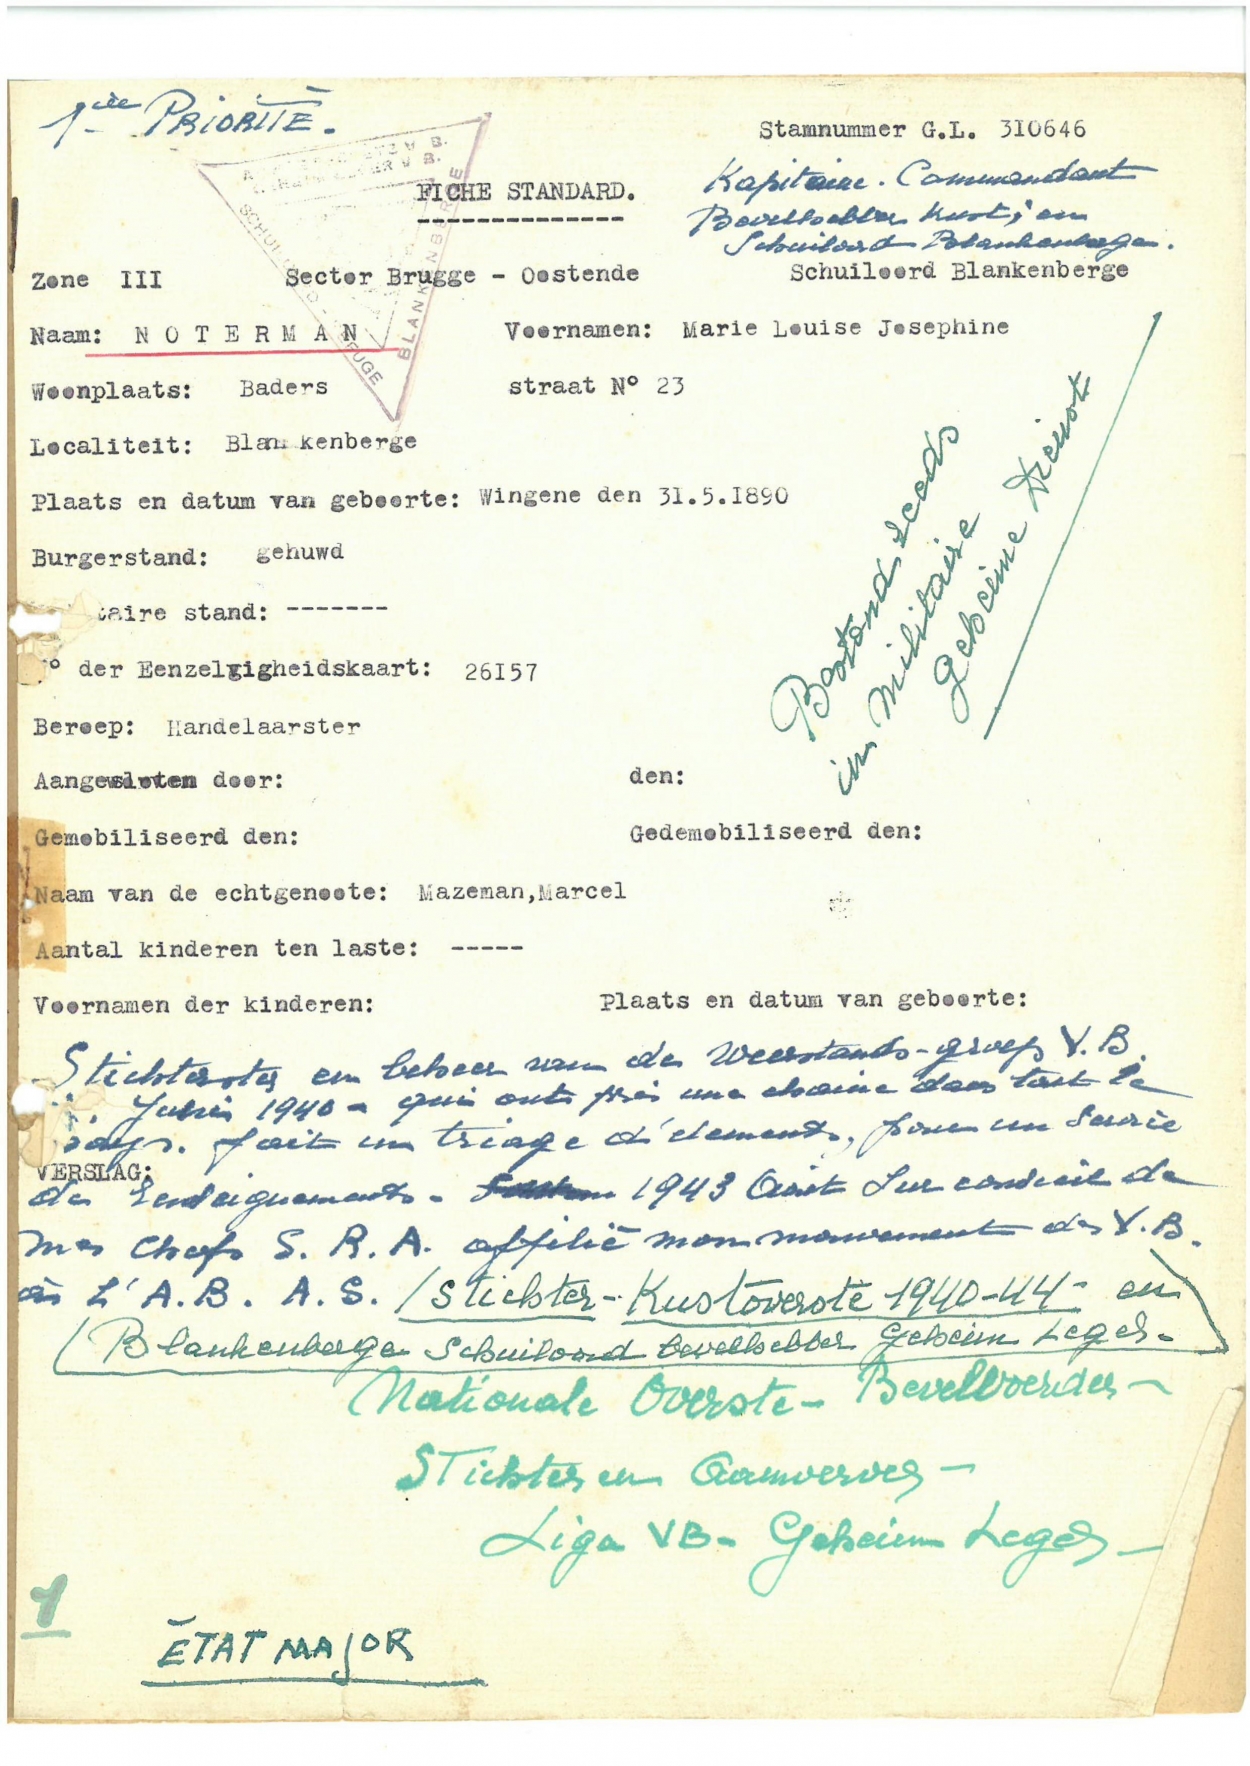 1ière PRIORITÉ.
Stamnummer G.L. 3I0646
Kapitaine. Commandant
FICHE STANDARD.
--------------
Bevelhebber Kust; en
Schuiloord Blankenberge.
Zone III Sector Brugge - Oostende Schuiloord Blankenberge
Naam: N O T E R M A N Voornamen: Marie Louise Josephine
Woonplaats: Baders straat N° 23
Localiteit: Blankenberge
Plaats en datum van geboorte: Wingene den 3I.5.I890
Burgerstand: gehuwd
taire stand: -------
° der Eenzelvigheidskaart: 26I57
Beroep: Handelaarster
Aangesloten door: den:
Gemobiliseerd den: Gedemobiliseerd den:
Naam van de echtgenoote: Mazeman,Marcel
Aantal kinderen ten laste: -----
Voornamen der kinderen: Plaats en datum van geboorte:
in militaire
Geheime Dienst
SCHUILOORD - BRUGGE
BLANKENBERGE
Stichterster en beheer van de Weerstands-groep V.B.
1940 - qui ont pris une chaine dans tout le
pays. fait un triage d'elements, pour un Service
VERSLAG:
de Renseignements - 1943 Août Sur conseil de
mes Chefs S. R. A. affilié mon mouvement des V.B.
à L'A.B. A.S. / Stichter - Kustoverste 1940-44 - en
Blankenberge Schuiloord bevelhebber Geheim Leger -
Nationale Overste - Bevelvoerder -
Stichter en Aanwerver -
Liga VB - Geheim Leger -
1
ÉTAT MAJOR